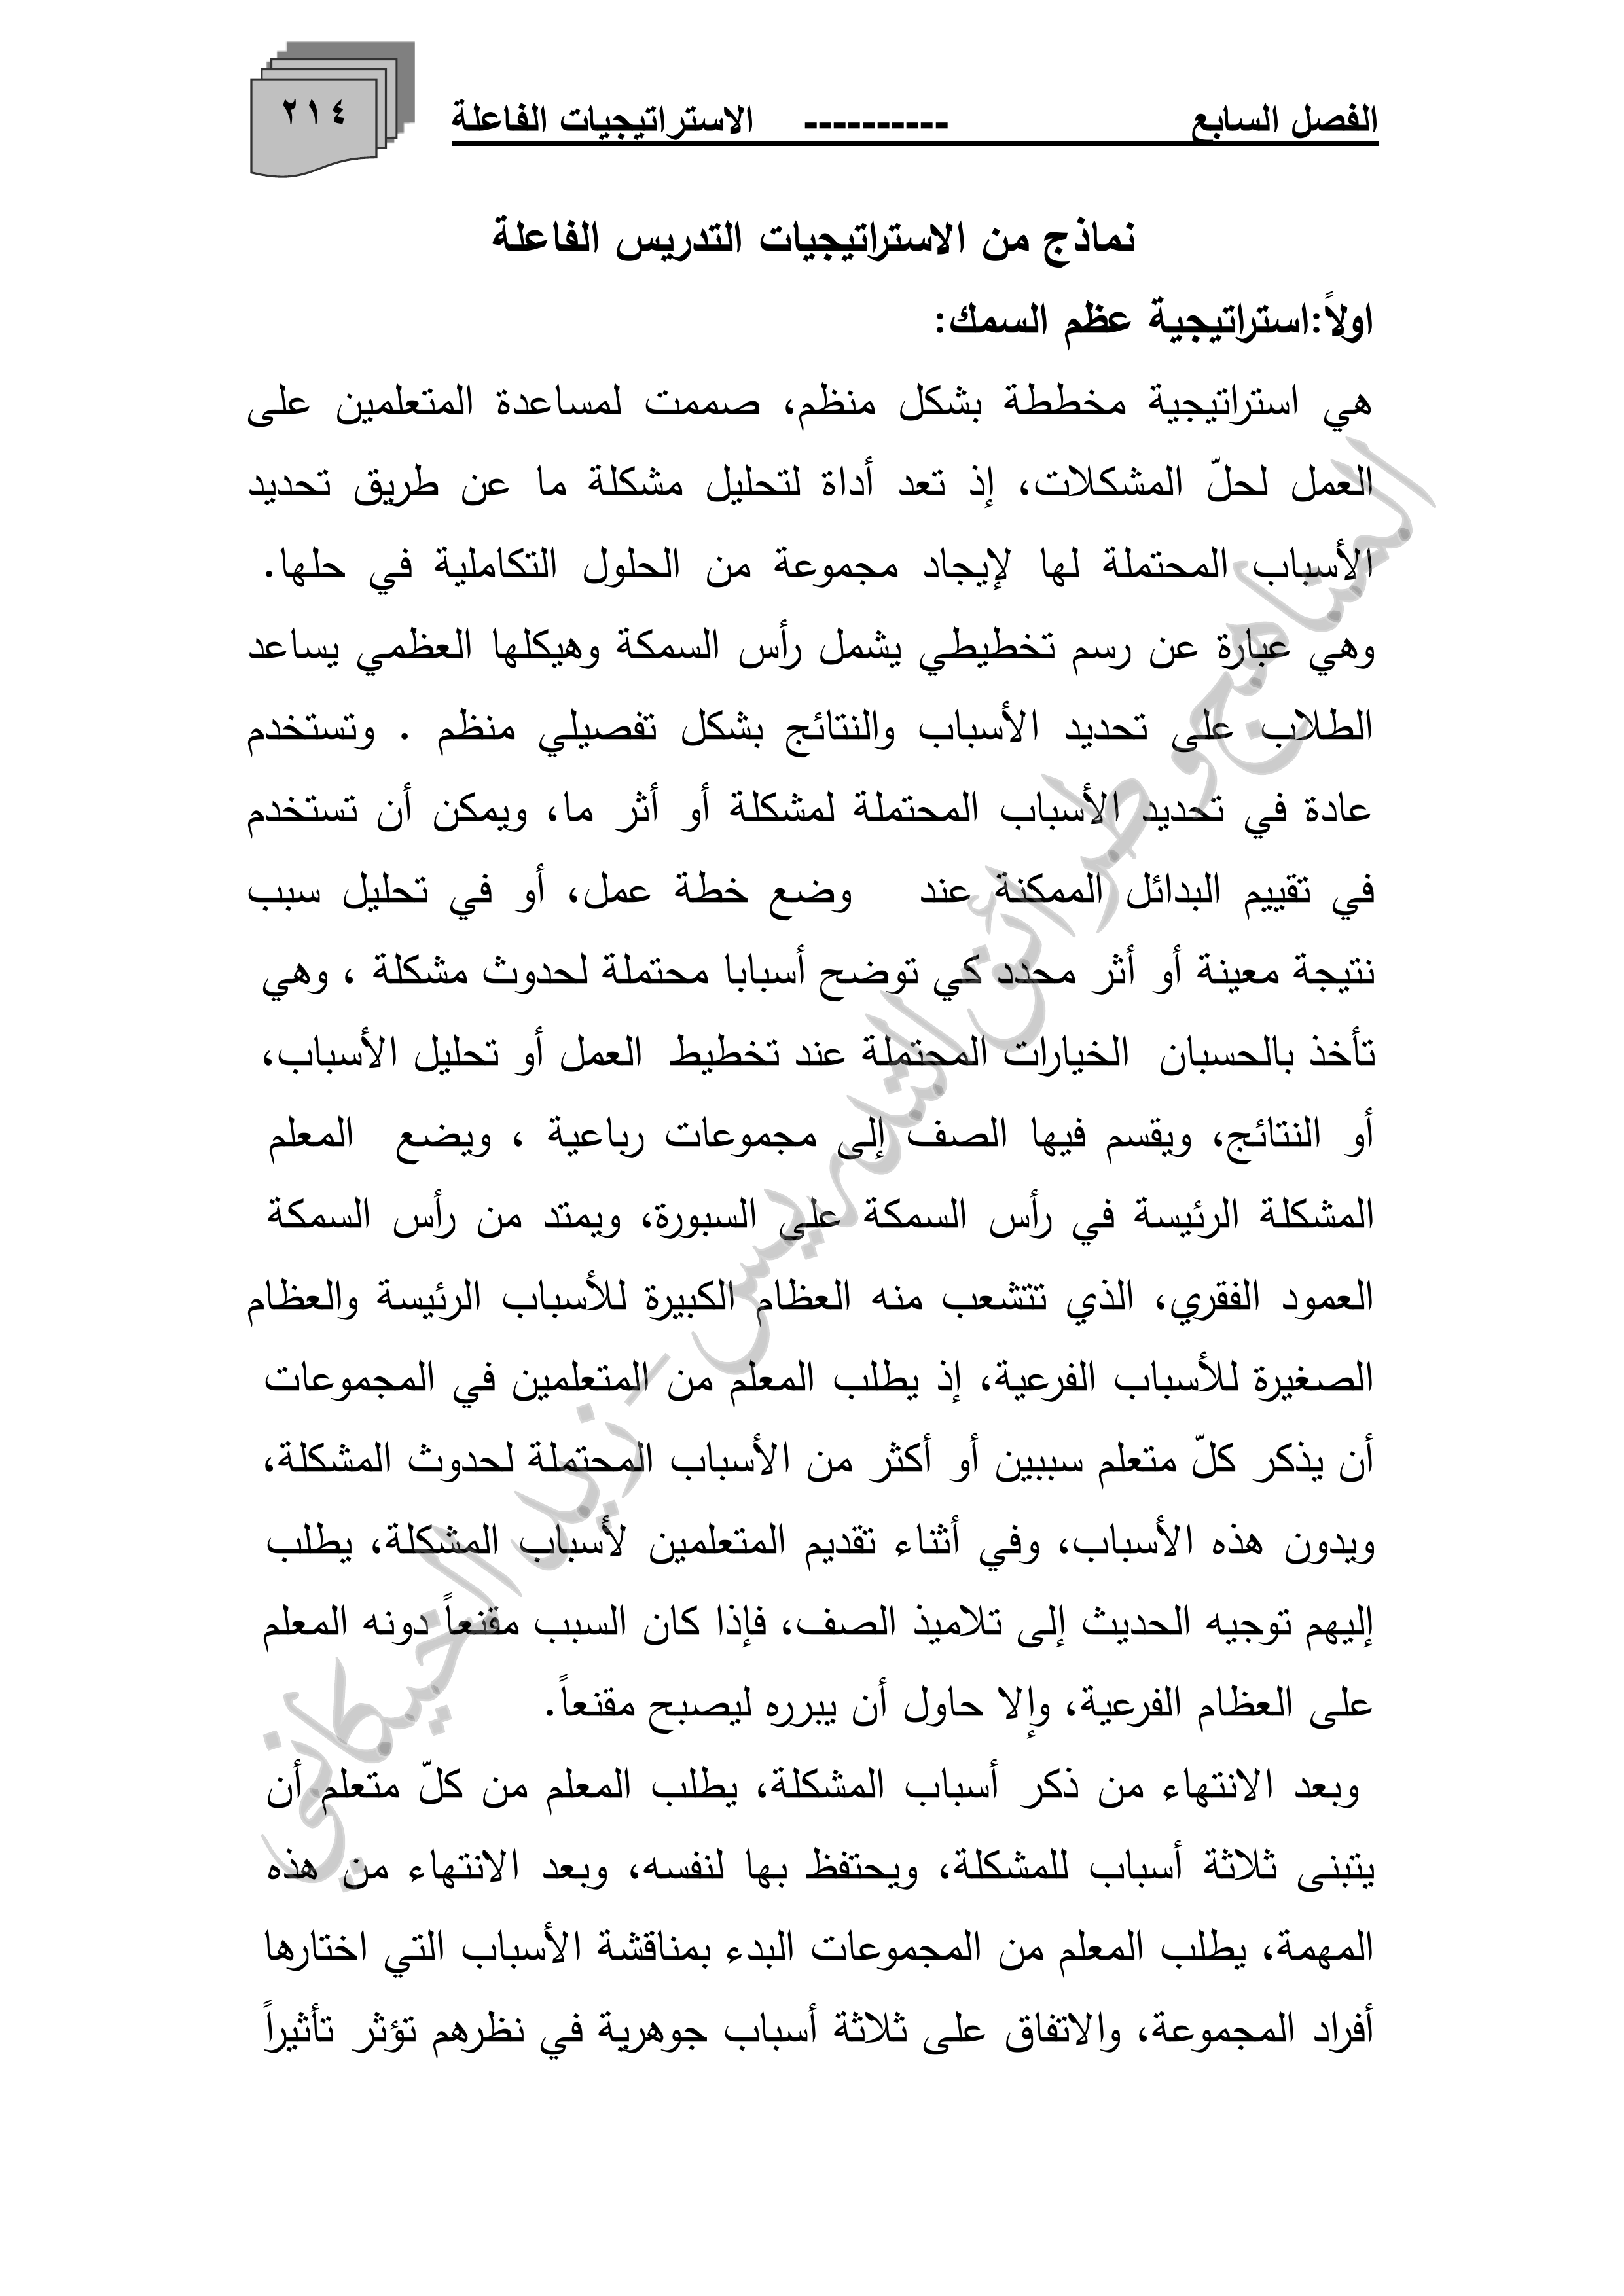 الفصل السابع ---------- الاستراتيجيات الفاعلة
٢١٤
نماذج من الاستراتيجيات التدريس الفاعلة
اولاً:استراتيجية عظم السمك:
هي استراتيجية مخططة بشكل منظم، صممت لمساعدة المتعلمين على
العمل لحلّ المشكلات، إذ تعد أداة لتحليل مشكلة ما عن طريق تحديد
الأسباب المحتملة لها لإيجاد مجموعة من الحلول التكاملية في حلها.
وهي عبارة عن رسم تخطيطي يشمل رأس السمكة وهيكلها العظمي يساعد
الطلاب على تحديد الأسباب والنتائج بشكل تفصيلي منظم . وتستخدم
عادة في تحديد الأسباب المحتملة لمشكلة أو أثر ما، ويمكن أن تستخدم
في تقييم البدائل الممكنة عند وضع خطة عمل، أو في تحليل سبب
نتيجة معينة أو أثر محدد كي توضح أسبابا محتملة لحدوث مشكلة ، وهي
تأخذ بالحسبان الخيارات المحتملة عند تخطيط العمل أو تحليل الأسباب،
أو النتائج، ويقسم فيها الصف إلى مجموعات رباعية ، ويضع المعلم
المشكلة الرئيسة في رأس السمكة على السبورة، ويمتد من رأس السمكة
العمود الفقري، الذي تتشعب منه العظام الكبيرة للأسباب الرئيسة والعظام
الصغيرة للأسباب الفرعية، إذ يطلب المعلم من المتعلمين في المجموعات
أن يذكر كلّ متعلم سببين أو أكثر من الأسباب المحتملة لحدوث المشكلة،
ويدون هذه الأسباب، وفي أثناء تقديم المتعلمين لأسباب المشكلة، يطلب
إليهم توجيه الحديث إلى تلاميذ الصف، فإذا كان السبب مقنعاً دونه المعلم
على العظام الفرعية، وإلا حاول أن يبرره ليصبح مقنعاً.
وبعد الانتهاء من ذكر أسباب المشكلة، يطلب المعلم من كلّ متعلم أن
يتبنى ثلاثة أسباب للمشكلة، ويحتفظ بها لنفسه، وبعد الانتهاء من هذه
المهمة، يطلب المعلم من المجموعات البدء بمناقشة الأسباب التي اختارها
أفراد المجموعة، والاتفاق على ثلاثة أسباب جوهرية في نظرهم تؤثر تأثيراً
المناهج وطرائق التدريس - زيد الخيكاني